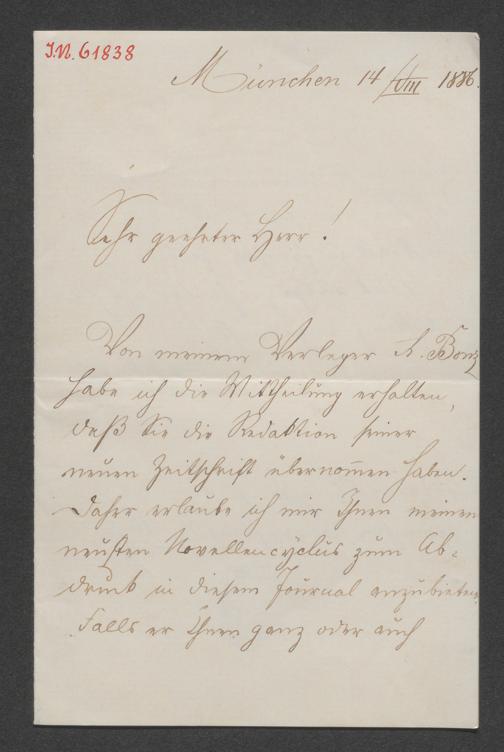 J.N. 61838
München 14/VIII 1886.
Sehr geehrter Herr!
Von meinem Verleger A. Bonz
habe ich die Mittheilung erhalten,
daß Sie die Redaktion seiner
neuen Zeitschrift übernommen haben.
Daher erlaube ich mir Ihnen meinen
neusten Novellencyclus zum Ab-
druck in diesem Journal anzubieten.
Falls er Ihnen ganz oder auch